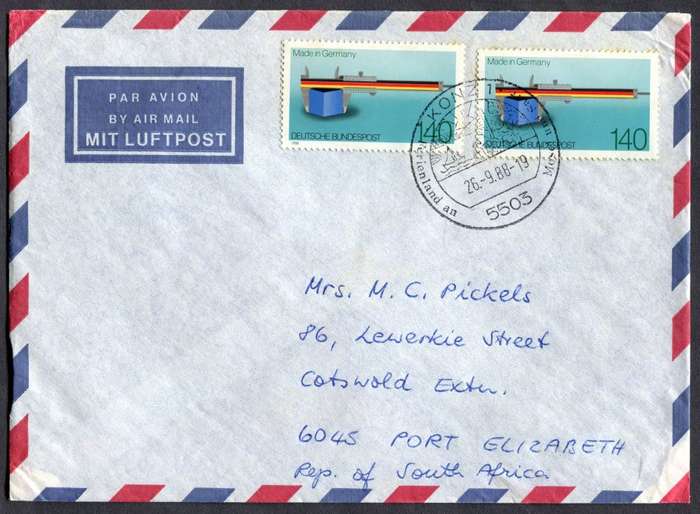 PAR AVION
BY AIR MAIL
MIT LUFTPOST
Made in Germany
140
DEUTSCHE BUNDESPOST
Made in Germany
140
DEUTSCHE BUNDESPOST
KONZ
1
26.-9.88-19
5503
Mrs. M. C. Pickels
86, Lewerkie Street
Cotswold Extn.
6045 PORT ELIZABETH
Rep. of South Africa